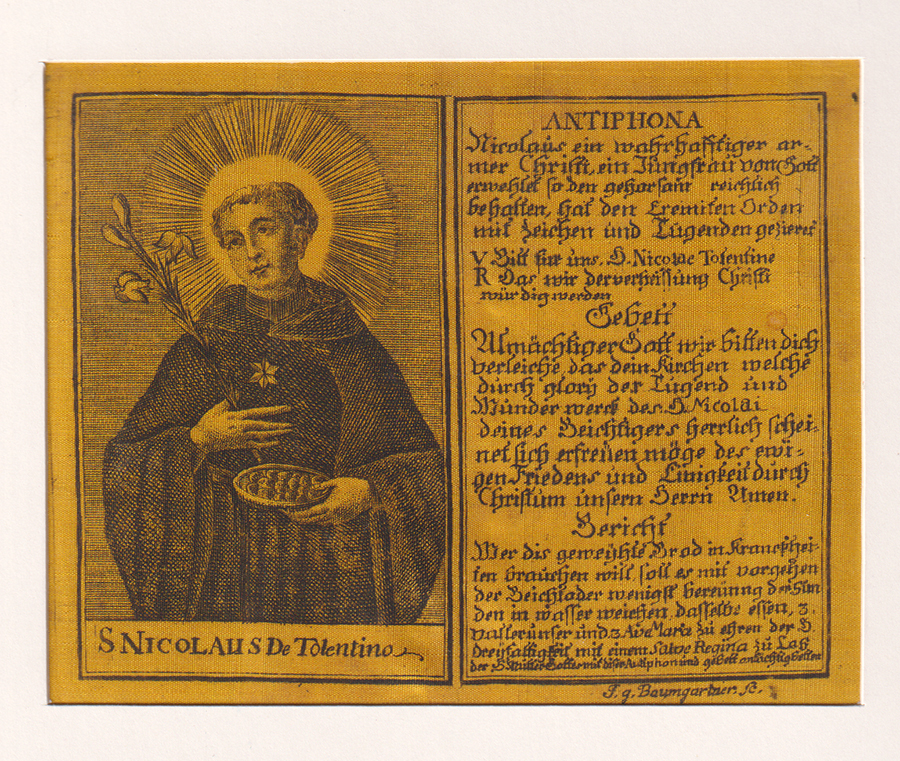 S NICOLAUS De Tolentino
ANTIPHONA
Nicolaus ein wahrhafftiger ar-
mer Christi, ein Jungfrau von Gott
erwehlet so den gehorsam reichlich
behalten, hat den Eremiten Orden
mit Zeichen und Tugenden gezieret
V Bitt für uns. S. Nicolae Tolentine
R Das wir der verheissung Christi
würdig werden
Gebett
Almächtiger Gott wir bitten dich
verleiche, das dein Kirchen welche
durch glory der Tugend und
Wunderwerck des S. Nicolai
deines Beichtigers herrlich schei-
net sich erfreuen möge des ewi-
gen Friedens und Einigkeit durch
Christum unsern Herrn Amen.
Bericht
Wer dis geweyhte Brod in Kranckhei-
ten brauchen will soll es mit vorgehen
der Beicht oder wenigst bereuung der Sün
den in wasser weichen dasselbe essen, 3.
vatterunser und 3 Ave Maria zu ehren der H.
Dreyfaltigkeit mit einem Salve Regina zu Lob
der S. Mutter Gottes mit diser Antiphon und gebett andächtig betten
J. g. Baumgartner. Sc.